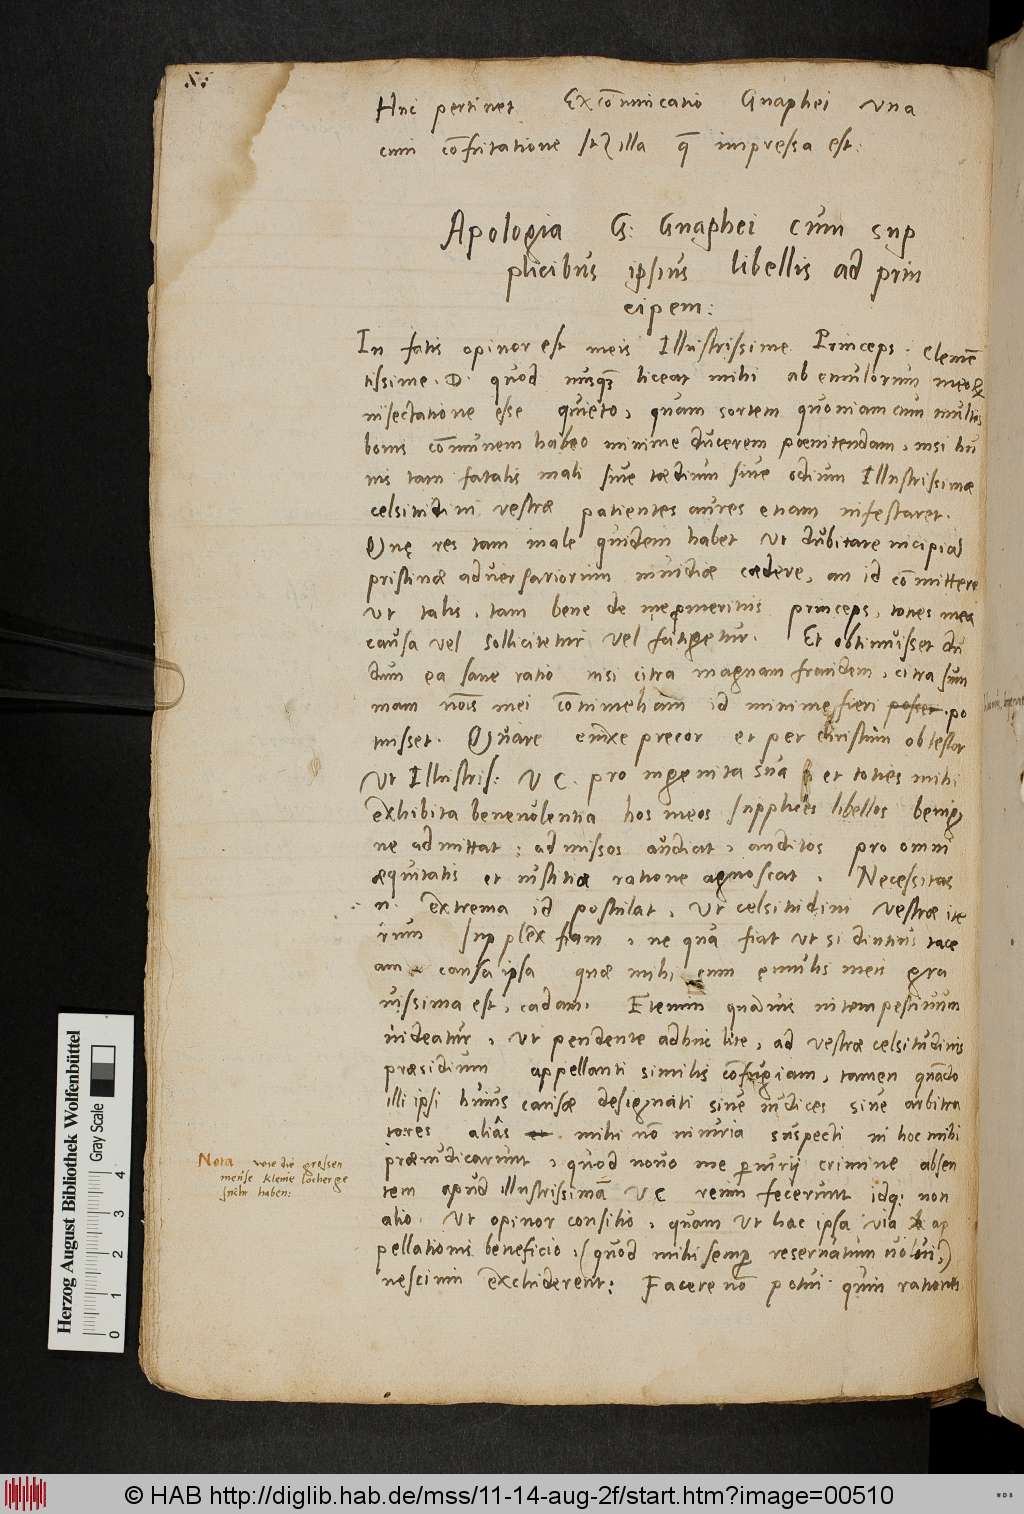 Huc pertinet Excom̄unicatio Gnaphei una
cum cōfutatione st Zilla q̄ impressa est:
Apologia G: Gnaphei cum sup
plicibus ipsius libellis ad prin
cipem:
In fatis opinor est meis Illustrissime Princeps. Clemē
tissime. D. quod nusqȝ liceat mihi ab emulorum meoꝝ
insectatione esse quieto, quam sortem quoniam cum multis
bonis com̄unem habeo minime ducerem poenitendam, nisi hu
ius tam fatalis mali sive tædium sive odium Illustrissimæ
celsitudini vestræ patientes aures etiam infestaret.
Quę res tam male quidem habet ut dubitare incipia
pristinæ adversariorum invidiæ cædere, an id com̄ittere
ut talis, tam bene de me promeritus princeps, toties mea
causa vel sollicitetur vel fatigetur. Et obtinuisset du
dum ea sane ratio nisi citra magnam fraudem, citra sum
mam nōis mei contumeliam id minime fieri posset po
tuisset. Quare enixe precor et per christum obtestor
Ut Illustriss: V C. pro ingenita sua et toties mihi
exhibita benevolentia hos meos supplices libellos benig
ne admittat, admissos audiat, auditos pro omni
æquitatis et iustitiæ ratione agnoscat. Necessitas
n. extrema id postulat, ut celsitudini vestræ ite
rum supplex fiam, ne qua fiat ut si diutius tace
am causa ipsa quæ mihi cum ęmulis meis gra
vissima est, cadam. Etenim quāvis intempestivum
videatur, ut pendente adhuc lite, ad vestræ celsitudinis
præsidium appellanti similis cōfugiam, tamen quādo
illi ipsi huius causæ designati sive iudices sive arbitra
tores aliâs mihi nō iniuria suspecti in hoc mihi
præiudicarunt, quod novo me periurij crimine absen
tem apud illustrissimā V C reum fecerunt idq; non
alio. ut opinor consilio, quam ut hac ipsa via ap
pellationis beneficio, (quod mihi semper reservatum volui,)
nescium excluderent: Facere nō potui quin rationes
Nota wie die grossen
meüse kleine löcher ge
sucht haben:
Herzog August Bibliothek Wolfenbüttel
Gray Scale
0 1 2 3 4
© HAB http://diglib.hab.de/mss/11-14-aug-2f/start.htm?image=00510